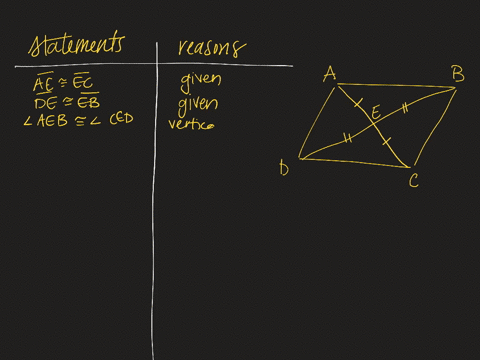 statements reasons
AE ≅ EC given
DE ≅ EB given
∠ AEB ≅ ∠ CED vertica
A B
E
D C